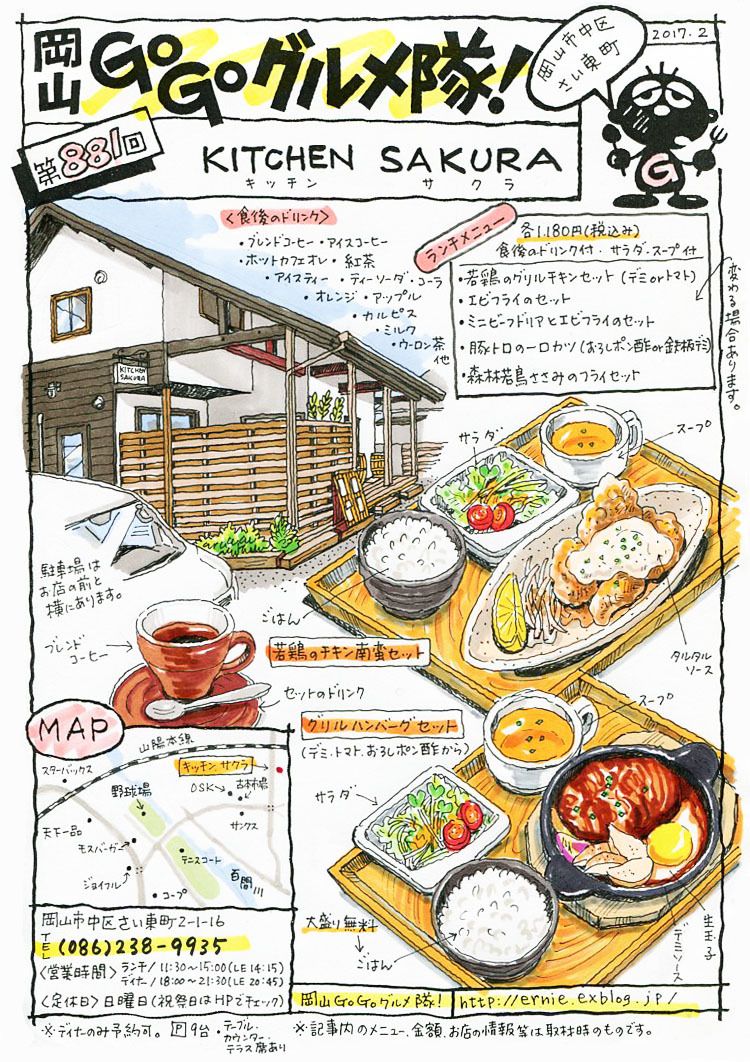 2017.2
岡山GoGoグルメ隊!
岡山市中区
さい東町
G
第881回
KITCHEN SAKURA
キッチン サクラ
<食後のドリンク>
・ブレンドコーヒー・アイスコーヒー
・ホットカフェオレ・紅茶
・アイスティー・ティーソーダ・コーラ
・オレンジ・アップル
・カルピス
・ミルク
・ウーロン茶
他
ランチメニュー
各1.180円(税込み)
食後のドリンク付・サラダ・スープ付
・若鶏のグリルチキンセット(デミorトマト)
・エビフライのセット
・ミニビーフドリアとエビフライのセット
・豚トロの一口カツ(おろしポン酢or鉄板デミ)
・森林若鳥ささみのフライセット
変わる場合あります。
KITCHEN
SAKURA
サラダ
スープ
駐車場は
お店の前と
横にあります。
ごはん
若鶏のチキン南蛮セット
タルタル
ソース
ブレンド
コーヒー
セットのドリンク
グリルハンバーグセット
(デミ、トマト、おろしポン酢から)
スープ
サラダ
大盛り無料
ごはん
デミソース
生玉子
MAP
山陽本線
スターバックス
キッチンサクラ
OSK
古本市場
野球場
サンクス
天下一品
モスバーガー
テニスコート
ジョイフル
百間川
コープ
岡山市中区さい東町2-1-16
TEL(086)238-9935
<営業時間>ランチ/11:30~15:00(LE 14:15)
ディナー/18:00~21:30(LE 20:45)
<定休日>日曜日(祝祭日はHPでチェック)
岡山GoGoグルメ隊! http://ernie.exblog.jp/
※ディナのみ予約可。 P 9台・テーブル・
カウンター・
テラス席あり
※記事内のメニュー、金額、お店の情報等は取材時のものです。